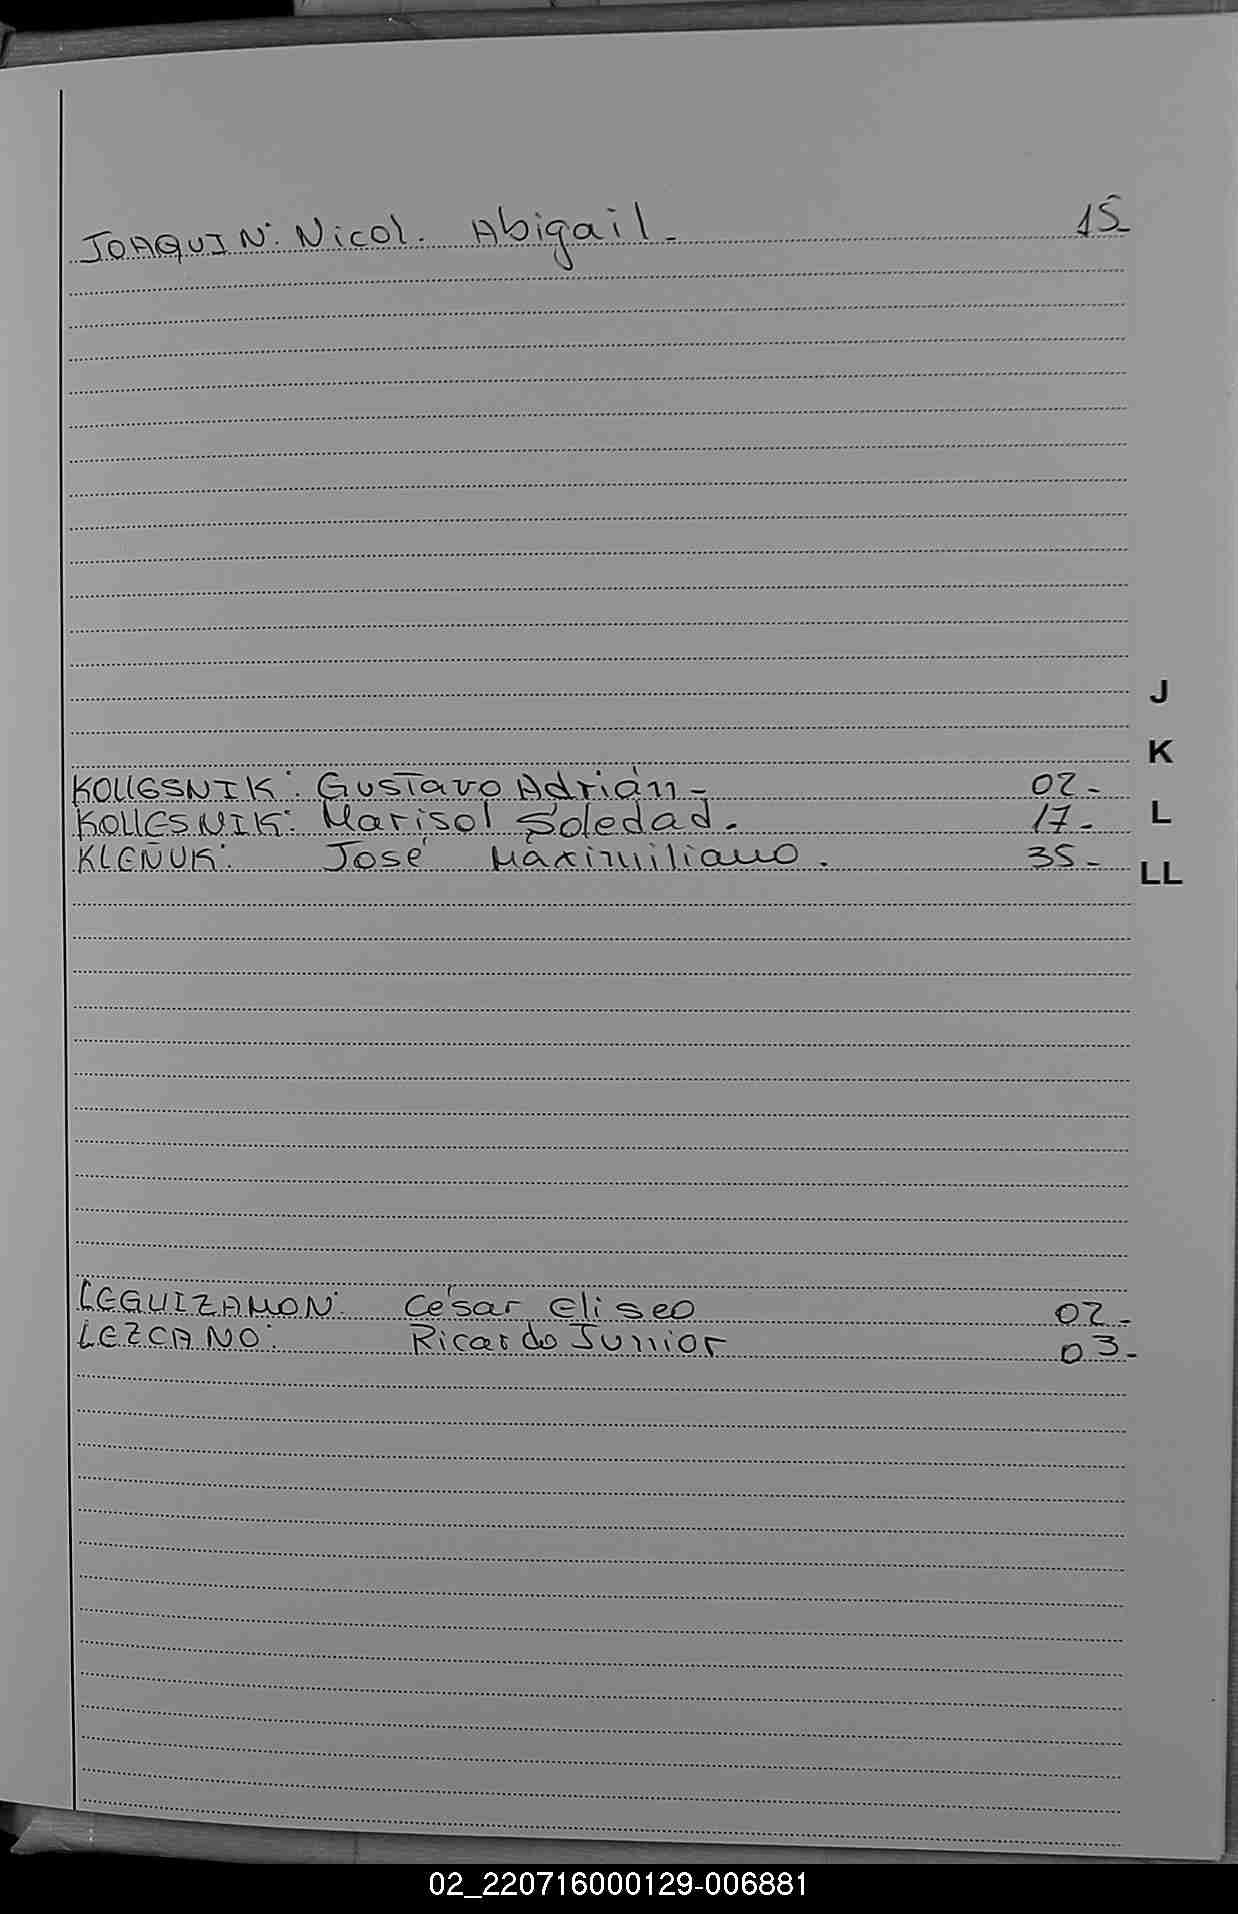 JOAQUIN: Nicol. Abigail. 15-
J
K
KOLLESNIK: Gustavo Adrián - 02-
KOLLESNIK: Marisol Soledad. 17-
L
KLEÑUK: José Maximiliano. 35-
LL
LEGUIZAMON: César Eliseo 02-
LEZCANO: Ricardo Junior 03-
02_220716000129-006881